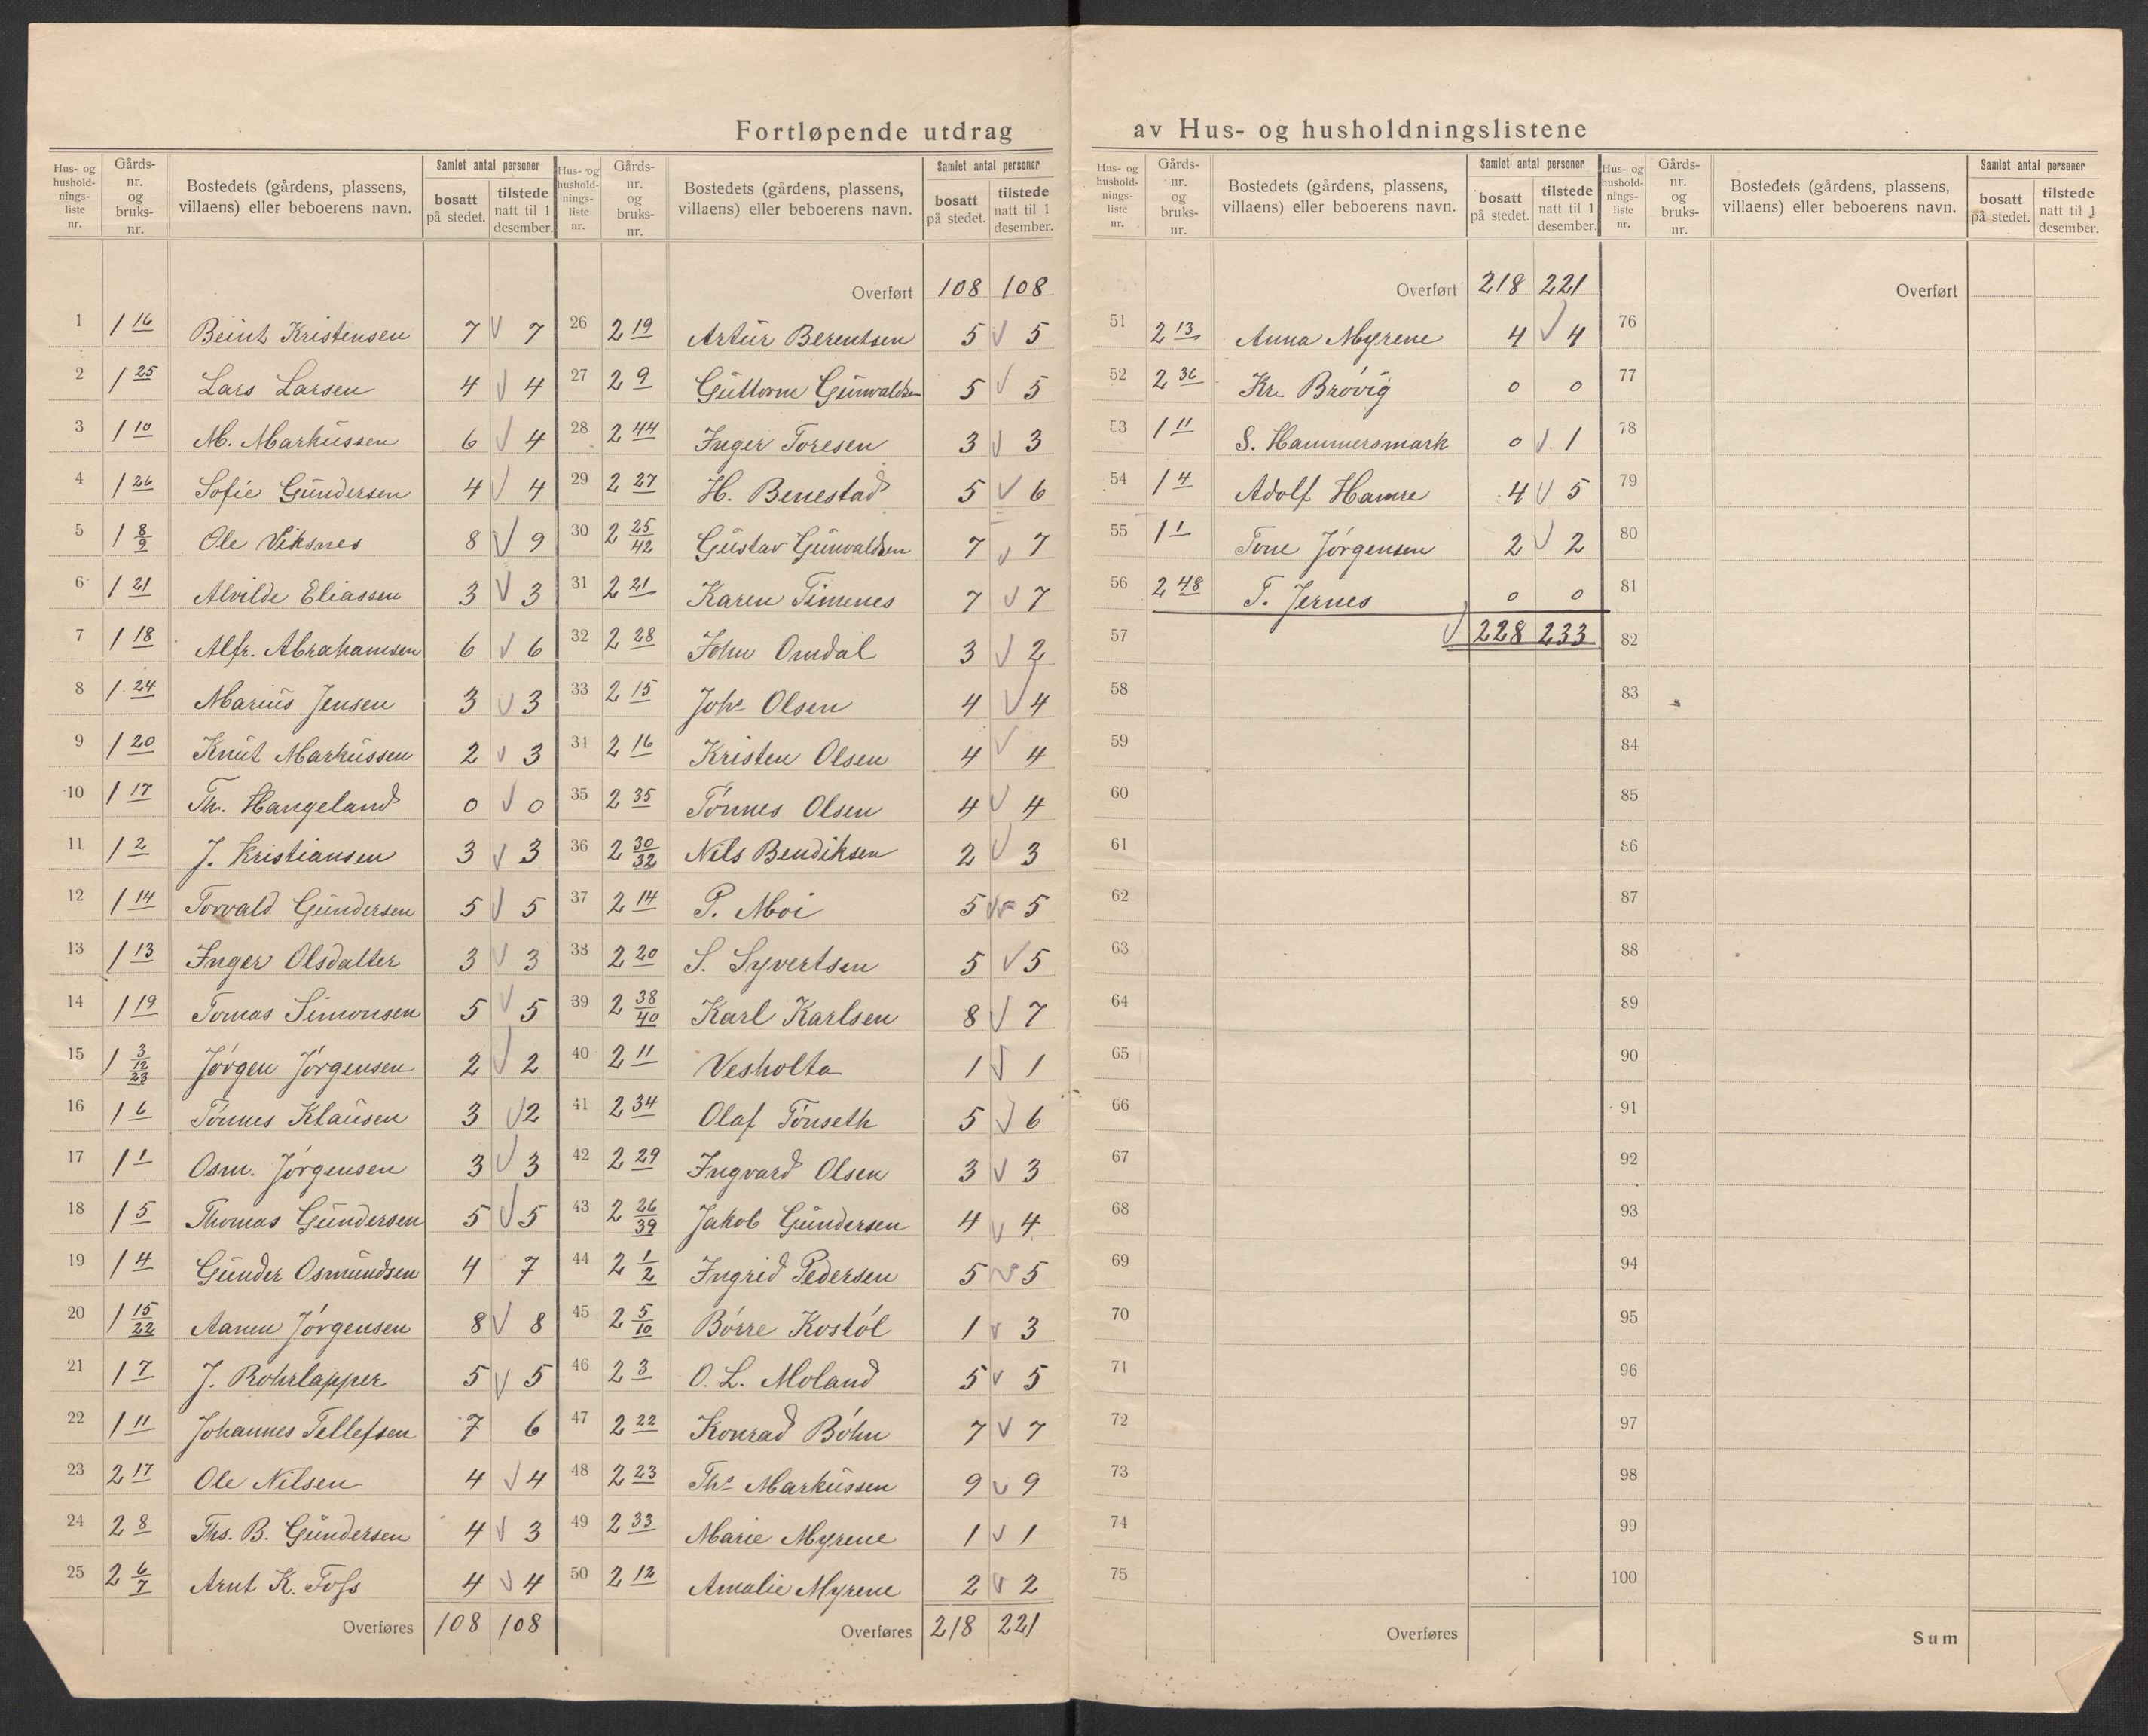 Fortløpende utdrag av Hus- og husholdningslistene
Hus- og husholdnings-liste nr. | Gårds-nr. og bruks-nr. | Bostedets (gårdens, plassens, villaens) eller beboerens navn. | Samlet antal personer: bosatt på stedet. | tilstede natt til 1 desember.
1 | 1 16 | Beint Kristensen | 7 | 7
2 | 1 25 | Lars Larsen | 4 | 4
3 | 1 10 | M. Markussen | 6 | 4
4 | 1 26 | Sofie Gundersen | 4 | 4
5 | 1 8/9 | Ole Viksnes | 8 | 9
6 | 1 21 | Alvilde Eliassen | 3 | 3
7 | 1 18 | Alfr. Abrahamsen | 6 | 6
8 | 1 24 | Marius Jensen | 3 | 3
9 | 1 20 | Knut Markussen | 2 | 3
10 | 1 17 | Th. Hangeland | 0 | 0
11 | 1 2 | J. Kristiansen | 3 | 3
12 | 1 14 | Torvald Gundersen | 5 | 5
13 | 1 13 | Inger Olsdatter | 3 | 3
14 | 1 19 | Tomas Simonsen | 5 | 5
15 | 1 3/12/23 | Jörgen Jörgensen | 2 | 2
16 | 1 6 | Tönnes Klausen | 3 | 2
17 | 1 1 | Osm. Jörgensen | 3 | 3
18 | 1 5 | Thomas Gundersen | 5 | 5
19 | 1 4 | Gunder Osmundsen | 4 | 7
20 | 1 15/22 | Aanen Jörgensen | 8 | 8
21 | 1 7 | J. Rohrlapper | 5 | 5
22 | 1 11 | Johannes Tellefsen | 7 | 6
23 | 2 17 | Ole Nilsen | 4 | 4
24 | 2 8 | Ths. B. Gundersen | 4 | 3
25 | 2 6/7 | Arnt K. Foss | 4 | 4
Overføres | 108 | 108
Hus- og husholdnings-liste nr. | Gårds-nr. og bruks-nr. | Bostedets (gårdens, plassens, villaens) eller beboerens navn. | Samlet antal personer: bosatt på stedet. | tilstede natt til 1 desember.
Overført | 108 | 108
26 | 2 19 | Artur Berentsen | 5 | 5
27 | 2 9 | Guttorm Gunvaldsen | 5 | 5
28 | 2 44 | Inger Toresen | 3 | 3
29 | 2 27 | H. Benestad | 5 | 6
30 | 2 25/42 | Gustav Gunvaldsen | 7 | 7
31 | 2 21 | Karen Timenes | 7 | 7
32 | 2 28 | John Omdal | 3 | 2
33 | 2 15 | Johs Olsen | 4 | 4
34 | 2 16 | Kristen Olsen | 4 | 4
35 | 2 35 | Tönnes Olsen | 4 | 4
36 | 2 30/32 | Nils Bendiksen | 2 | 3
37 | 2 14 | P. Moi | 5 | 5
38 | 2 20 | S. Syvertsen | 5 | 5
39 | 2 38/40 | Karl Karlsen | 8 | 7
40 | 2 11 | Vesholta | 1 | 1
41 | 2 34 | Olaf Tönseth | 5 | 6
42 | 2 29 | Ingvard Olsen | 3 | 3
43 | 2 26/39 | Jakob Gundersen | 4 | 4
44 | 2 1/2 | Ingrid Pedersen | 5 | 5
45 | 2 5/10 | Börre Kostöl | 1 | 3
46 | 2 3 | O. L. Moland | 5 | 5
47 | 2 22 | Konrad Böhn | 7 | 7
48 | 2 23 | Ths Markussen | 9 | 9
49 | 2 33 | Marie Myrene | 1 | 1
50 | 2 12 | Amalie Myrene | 2 | 2
Overføres | 218 | 221
Hus- og husholdnings-liste nr. | Gårds-nr. og bruks-nr. | Bostedets (gårdens, plassens, villaens) eller beboerens navn. | Samlet antal personer: bosatt på stedet. | tilstede natt til 1 desember.
Overført | 218 | 221
51 | 2 13 | Anna Myrene | 4 | 4
52 | 2 36 | Kr. Brövig | 0 | 0
53 | 1 11 | S. Hammersmark | 0 | 1
54 | 1 4 | Adolf Hamre | 4 | 5
55 | 1 1 | Tone Jörgensen | 2 | 2
56 | 2 48 | T. Jernes | 0 | 0
57 | 228 | 233
58
59
60
61
62
63
64
65
66
67
68
69
70
71
72
73
74
75
Overføres
Hus- og husholdnings-liste nr. | Gårds-nr. og bruks-nr. | Bostedets (gårdens, plassens, villaens) eller beboerens navn. | Samlet antal personer: bosatt på stedet. | tilstede natt til 1 desember.
Overført
76
77
78
79
80
81
82
83
84
85
86
87
88
89
90
91
92
93
94
95
96
97
98
99
100
Sum